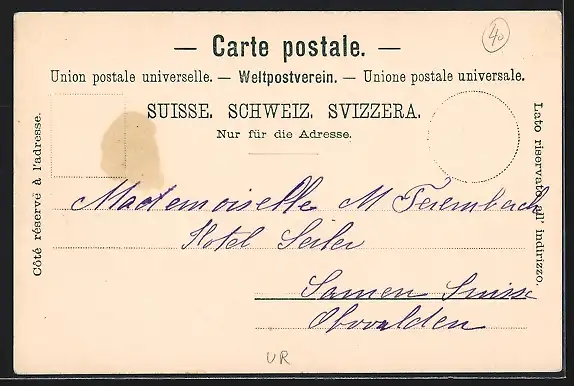 40
— Carte postale. —
Union postale universelle. — Weltpostverein. — Unione postale universale.
SUISSE. SCHWEIZ. SVIZZERA.
Nur für die Adresse.
Côté réservé à l'adresse.
Lato riservato all' indirizzo.
Mademoiselle M
Hotel Seiler
Sarnen Suisse
Obwalden
UR